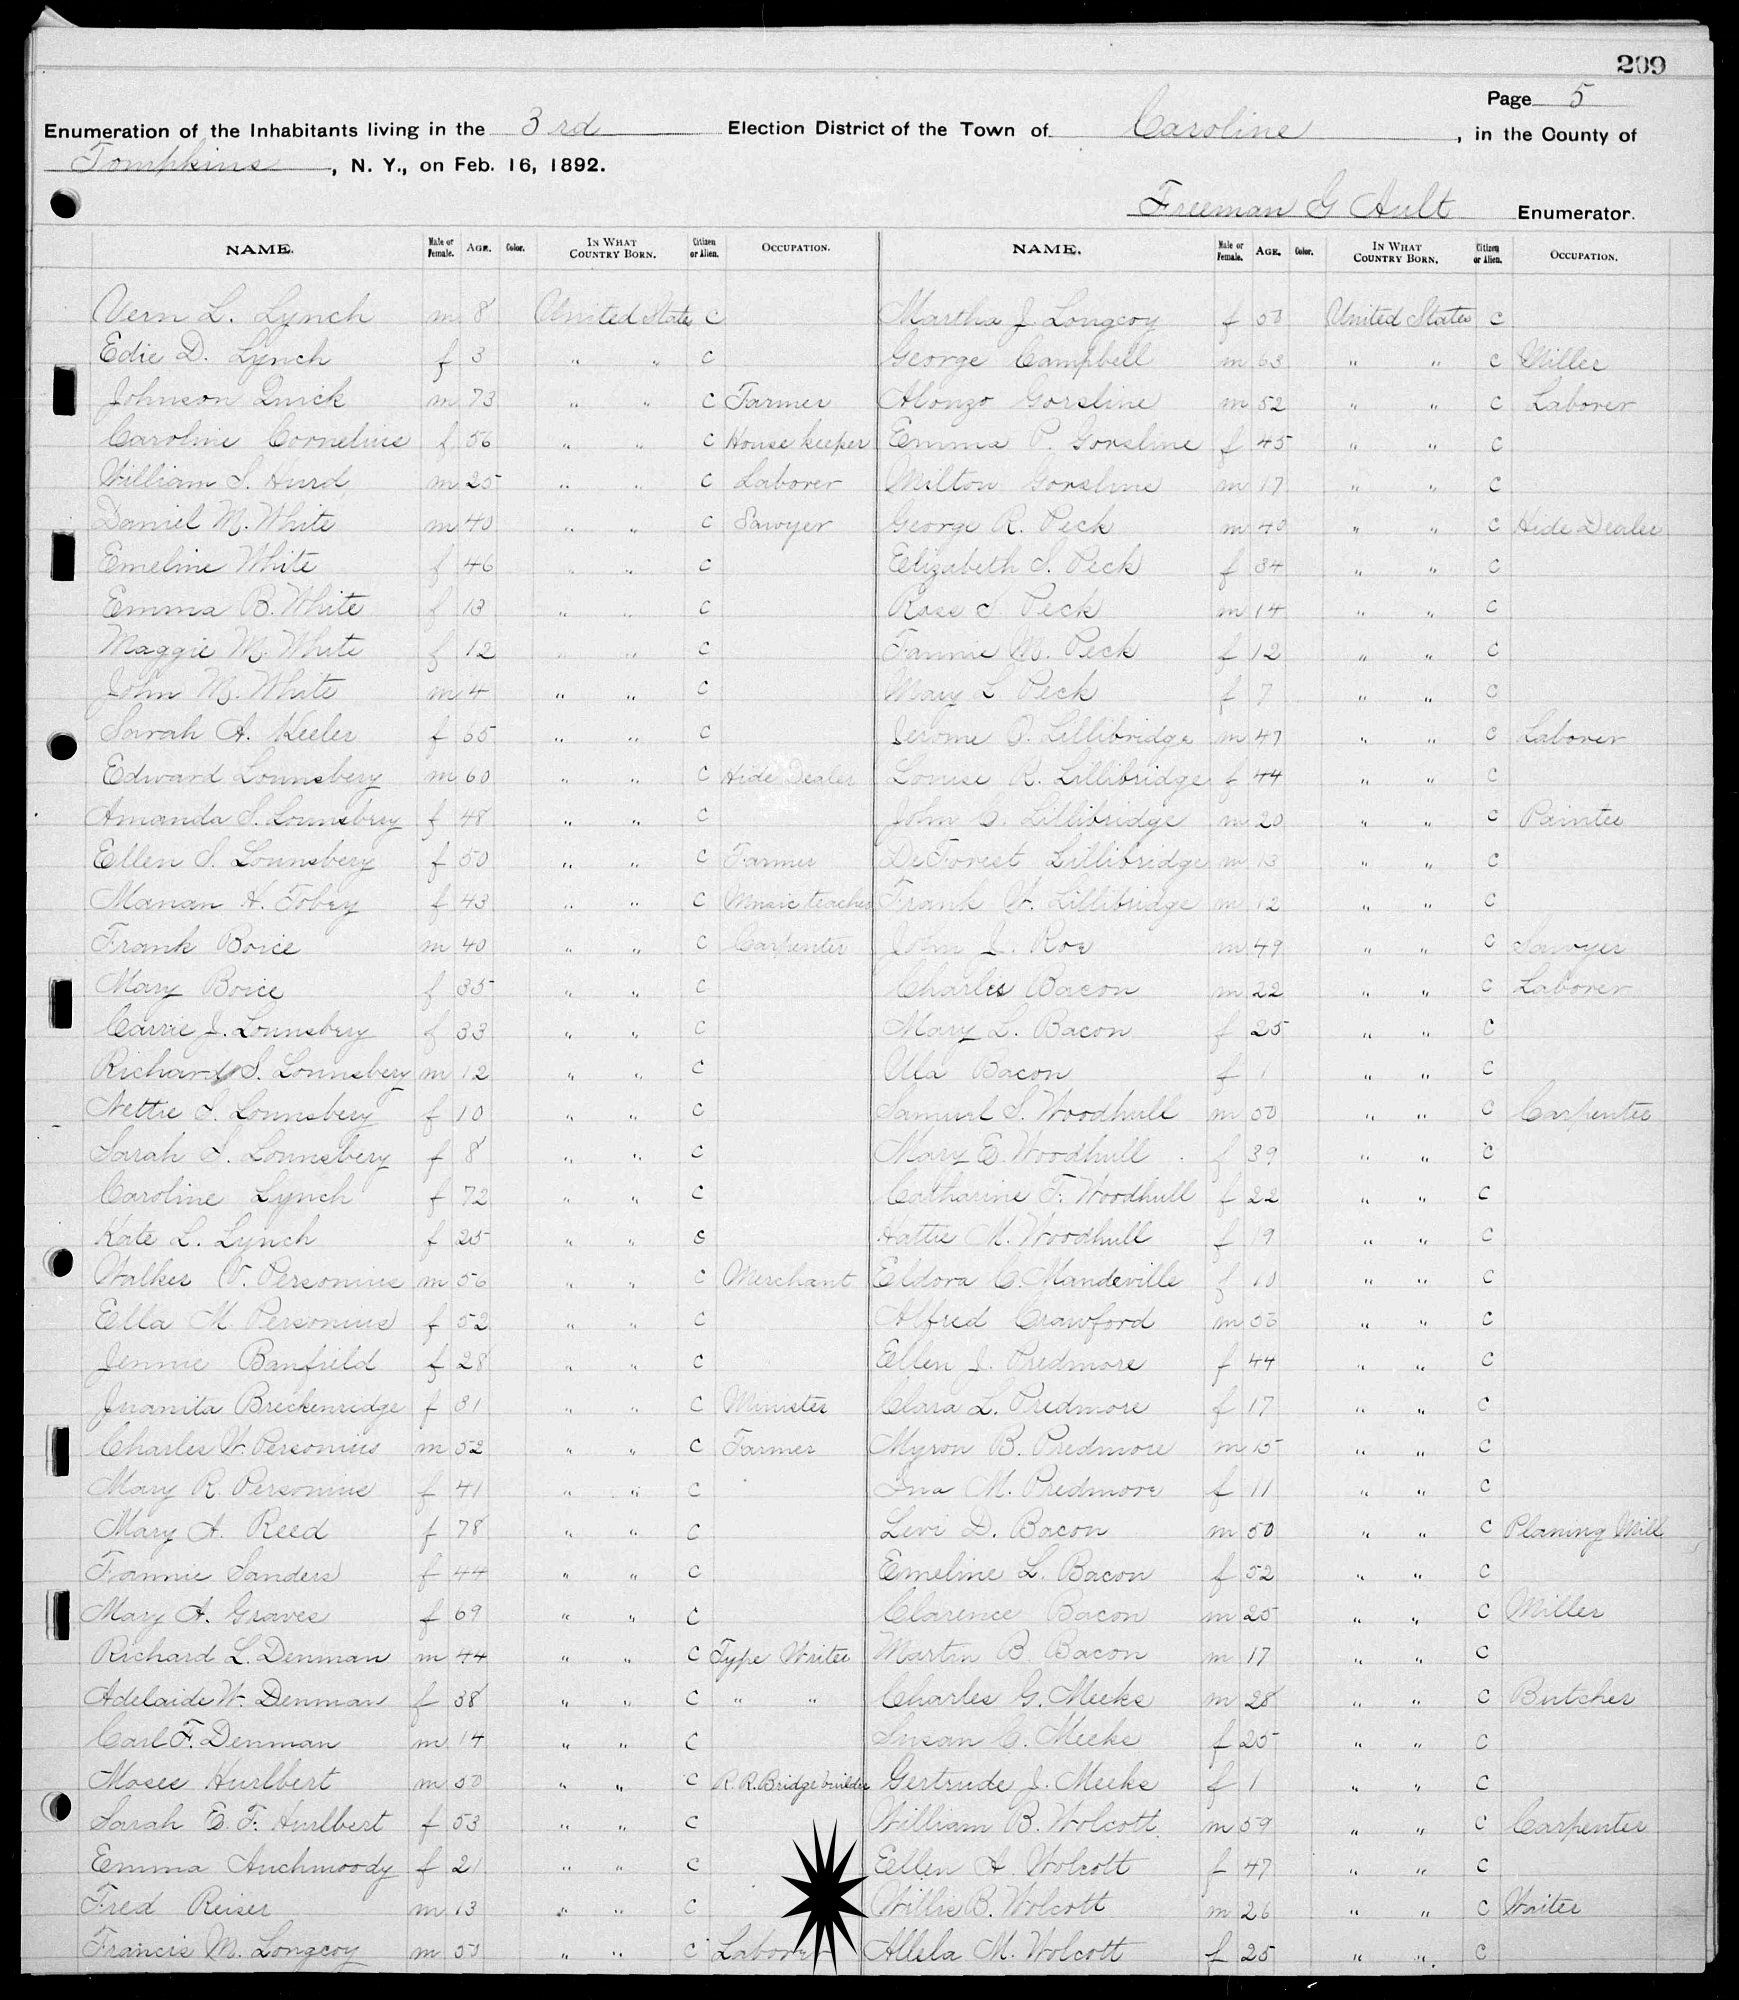 209
Page 5
Enumeration of the Inhabitants living in the 3rd Election District of the Town of Caroline, in the County of
Tompkins, N. Y., on Feb. 16, 1892.
Freeman G Ault Enumerator.
NAME. Male or Female. AGE. Color. IN WHAT COUNTRY BORN. Citizen or Alien. OCCUPATION.
Vern L. Lynch m 8 United States C
Edie D. Lynch f 3 " " C
Johnson Quick m 73 " " C Farmer
Caroline Cornelius f 56 " " C House keeper
William S. Hurd m 25 " " C Laborer
Daniel M. White m 40 " " C Sawyer
Emeline White f 46 " " C
Emma B. White f 13 " " C
Maggie M. White f 12 " " C
John M. White m 4 " " C
Sarah A. Keeler f 65 " " C
Edward Lounsbery m 60 " " C Hide Dealer
Amanda S. Lounsbery f 48 " " C
Ellen S. Lounsbery f 50 " " C Farmer
H. Tobey f 43 " " C Music teacher
Frank Boice m 40 " " C Carpenter
Mary Boice f 35 " " C
Carrie J. Lounsbery f 33 " " C
Richard S. Lounsbery m 12 " " C
Nettie S. Lounsbery f 10 " " C
Sarah S. Lounsbery f 8 " " C
Caroline Lynch f 72 " " C
Kate L. Lynch f 25 " " C
Walker V. Personius m 56 " " C Merchant
Ella M. Personius f 52 " " C
Jennie Banfield f 28 " " C
Juanita Breckenridge f 31 " " C Minister
Charles W. Personius m 52 " " C Farmer
Mary R. Personius f 41 " " C
Mary A. Reed f 78 " " C
Fannie Sanders f 44 " " C
Mary A. Graves f 69 " " C
Richard L. Denman m 44 " " C Type Writer
Adelaide W. Denman f 38 " " C " "
Carl F. Denman m 14 " " C
Moses Hurlbert m 50 " " C R. R. Bridge builder
Sarah E. F. Hurlbert f 53 " " C
Emma Auchmoody f 21 " " C
Fred Reiser m 13 " " C
Francis M. Longcoy m " " C Laborer
NAME. Male or Female. AGE. Color. IN WHAT COUNTRY BORN. Citizen or Alien. OCCUPATION.
Martha J Longcoy f 50 United States C
George Campbell m 63 " " C Miller
Alonzo Gorsline m 52 " " C Laborer
Emma P. Gorsline f 45 " " C
Milton Gorsline m 17 " " C
George R. Peck m 40 " " C Hide Dealer
Elizabeth S. Peck f 34 " " C
Ross S Peck m 14 " " C
Fannie M. Peck f 12 " " C
Mary L Peck f 7 " " C
Jerome P. Lillibridge m 47 " " C Laborer
Louise R. Lillibridge f 44 " " C
John C. Lillibridge m 20 " " C Painter
DeForest Lillibridge m 13 " " C
Frank W. Lillibridge m 12 " " C
John J. Roe m 49 " " C Sawyer
Charles Bacon m 22 " " C Laborer
Mary L. Bacon f 25 " " C
Ula Bacon f 1 " " C
Samuel S. Woodhull m 50 " " C Carpenter
Mary E. Woodhull f 39 " " C
Catharine F. Woodhull f 22 " " C
Hattie M. Woodhull f 19 " " C
Eldora C. Mandeville f 10 " " C
Alfred Crawford m 56 " " C
Ellen J. Predmore f 44 " " C
Clara L. Predmore f 17 " " C
Myron B. Predmore m 15 " " C
Ina M. Predmore f 11 " " C
Levi D. Bacon m 50 " " C Planing Mill
Emeline L. Bacon f 52 " " C
Clarence Bacon m 25 " " C Miller
Martin B. Bacon m 17 " " C
Charles G. Meeks m 28 " " C Butcher
Susan C. Meeks f 25 " " C
Gertrude J. Meeks f 1 " " C
William B. Wolcott m 59 " " C Carpenter
Ellen A Wolcott f 47 " " C
Willis B. Wolcott m 26 " " C Waiter
Allela M. Wolcott f 25 " " C